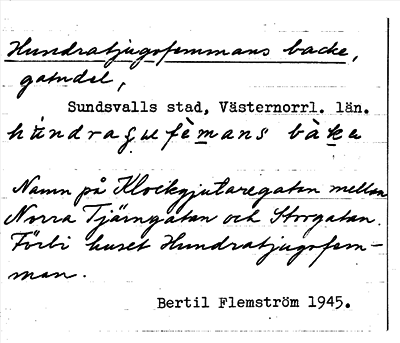 Hundratjugofemmans backe,
gatudel,
Sundsvalls stad, Västernorrl. län.
Namn på Klockgjutaregatan mellan
Norra Tjärngatan och Storgatan.
Förbi huset Hundratjugofem-
man.
Bertil Flemström 1945.